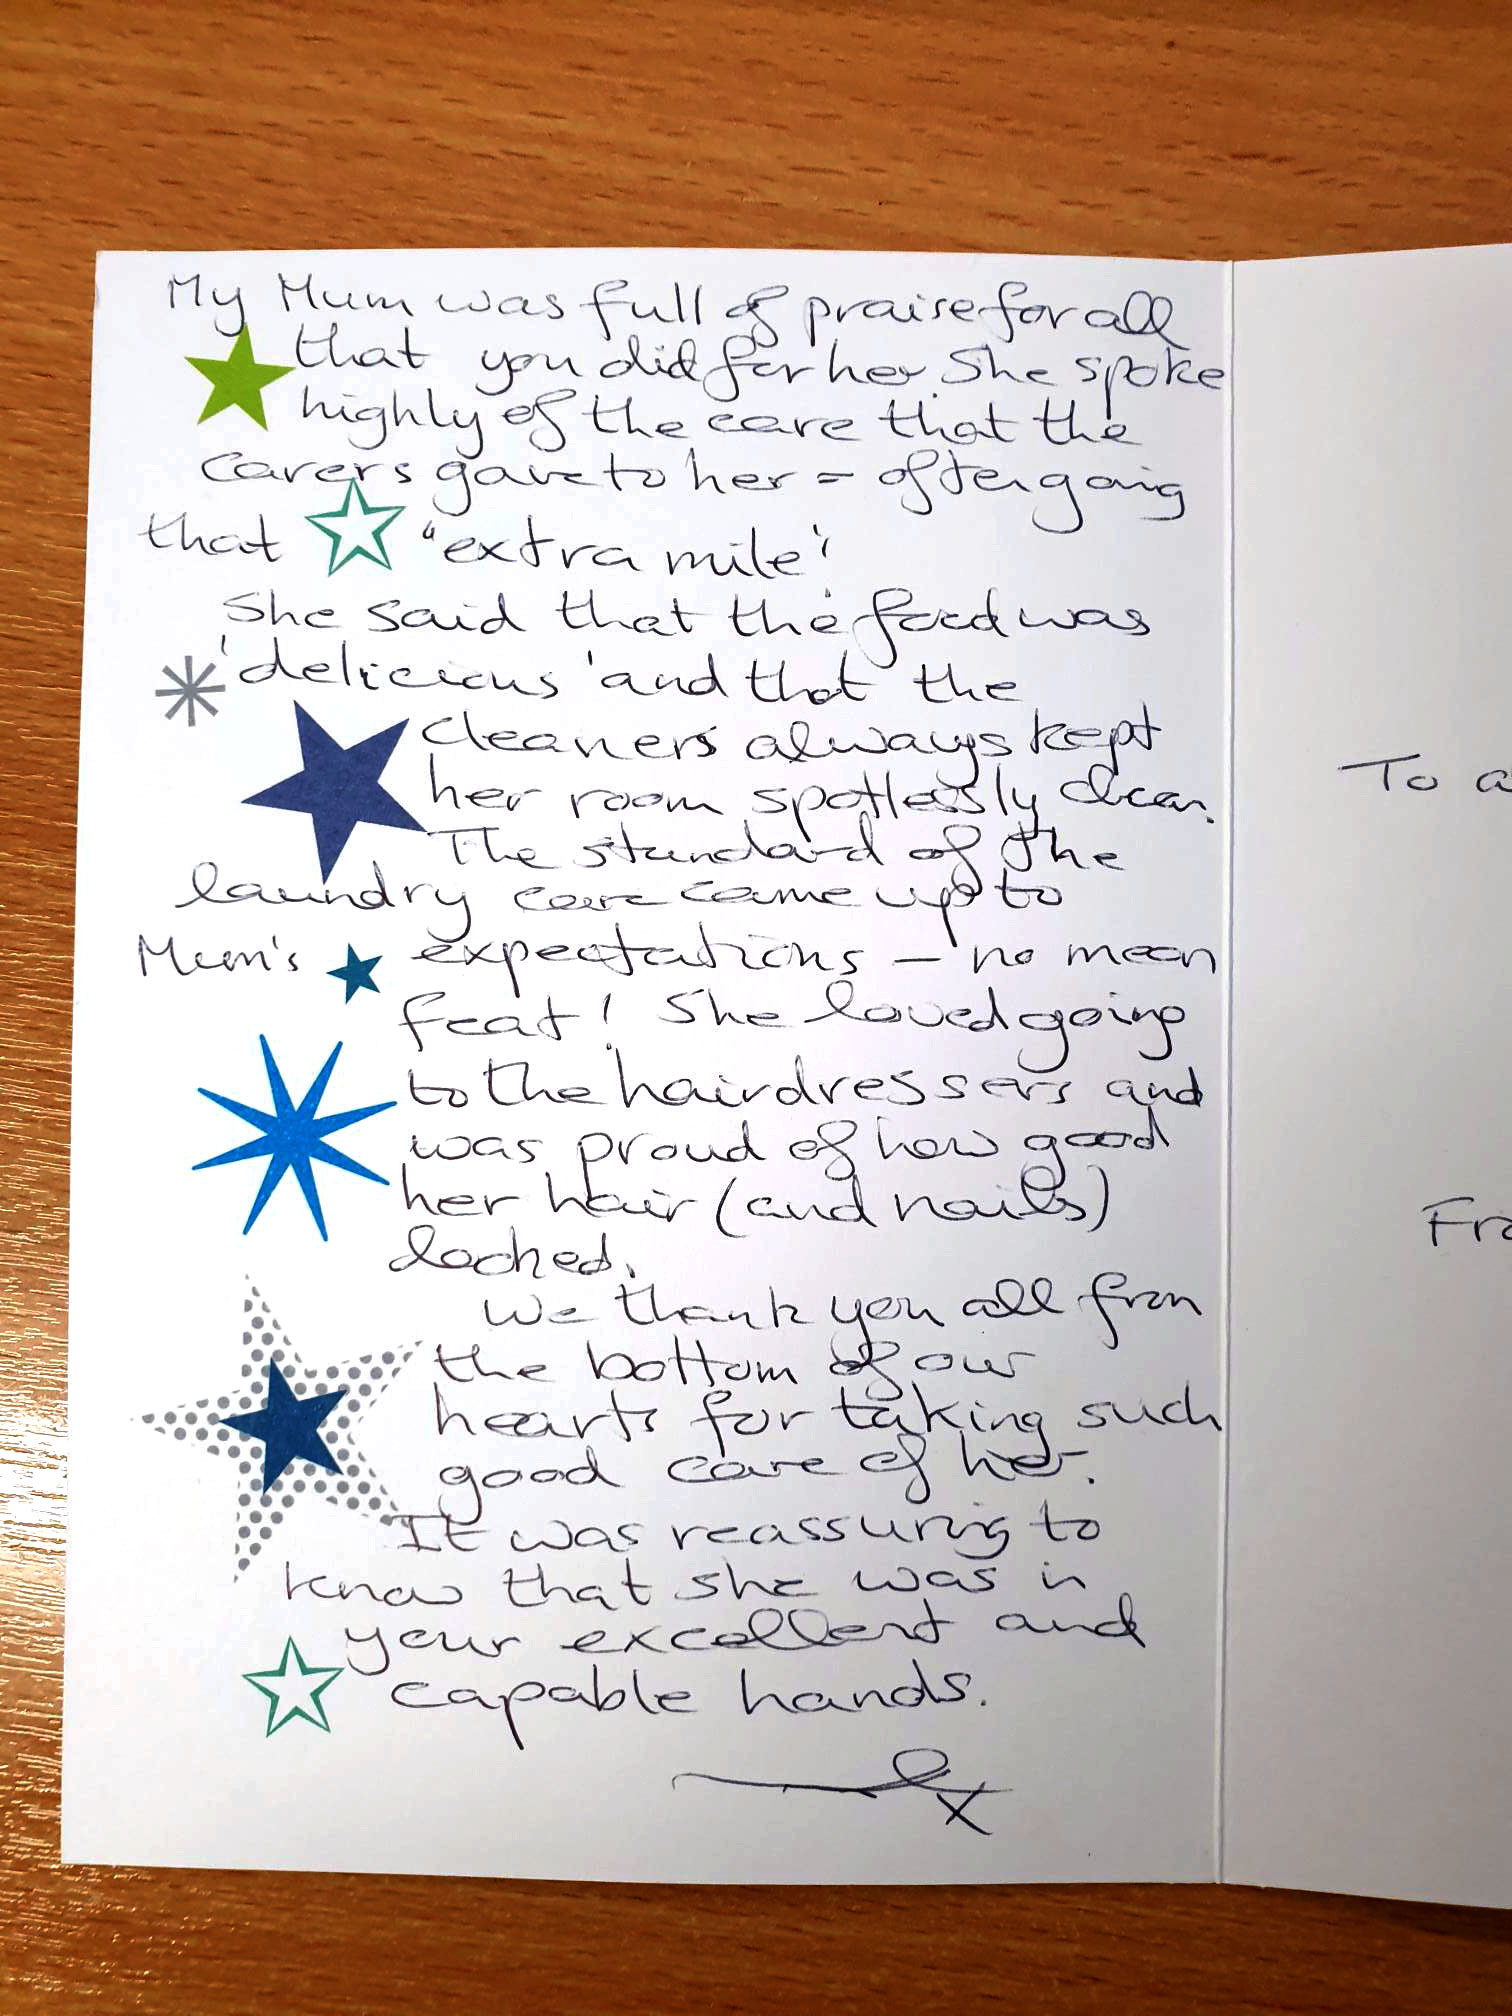 My Mum was full of praise for all
that you did for her. She spoke
highly of the care that the
carers gave to her - often going
that "extra mile'.
She said that the food was
'delicious' and that the
cleaners always kept
her room spotlessly clean.
The standard of the
laundry care came up to
Mum's expectations - no mean
feat! She loved going
to the hairdressers and
was proud of how good
her hair (and nails)
looked.
We thank you all from
the bottom of our
hearts for taking such
good care of her.
It was reassuring to
know that she was in
your excellent and
capable hands.
x
To a
Fro